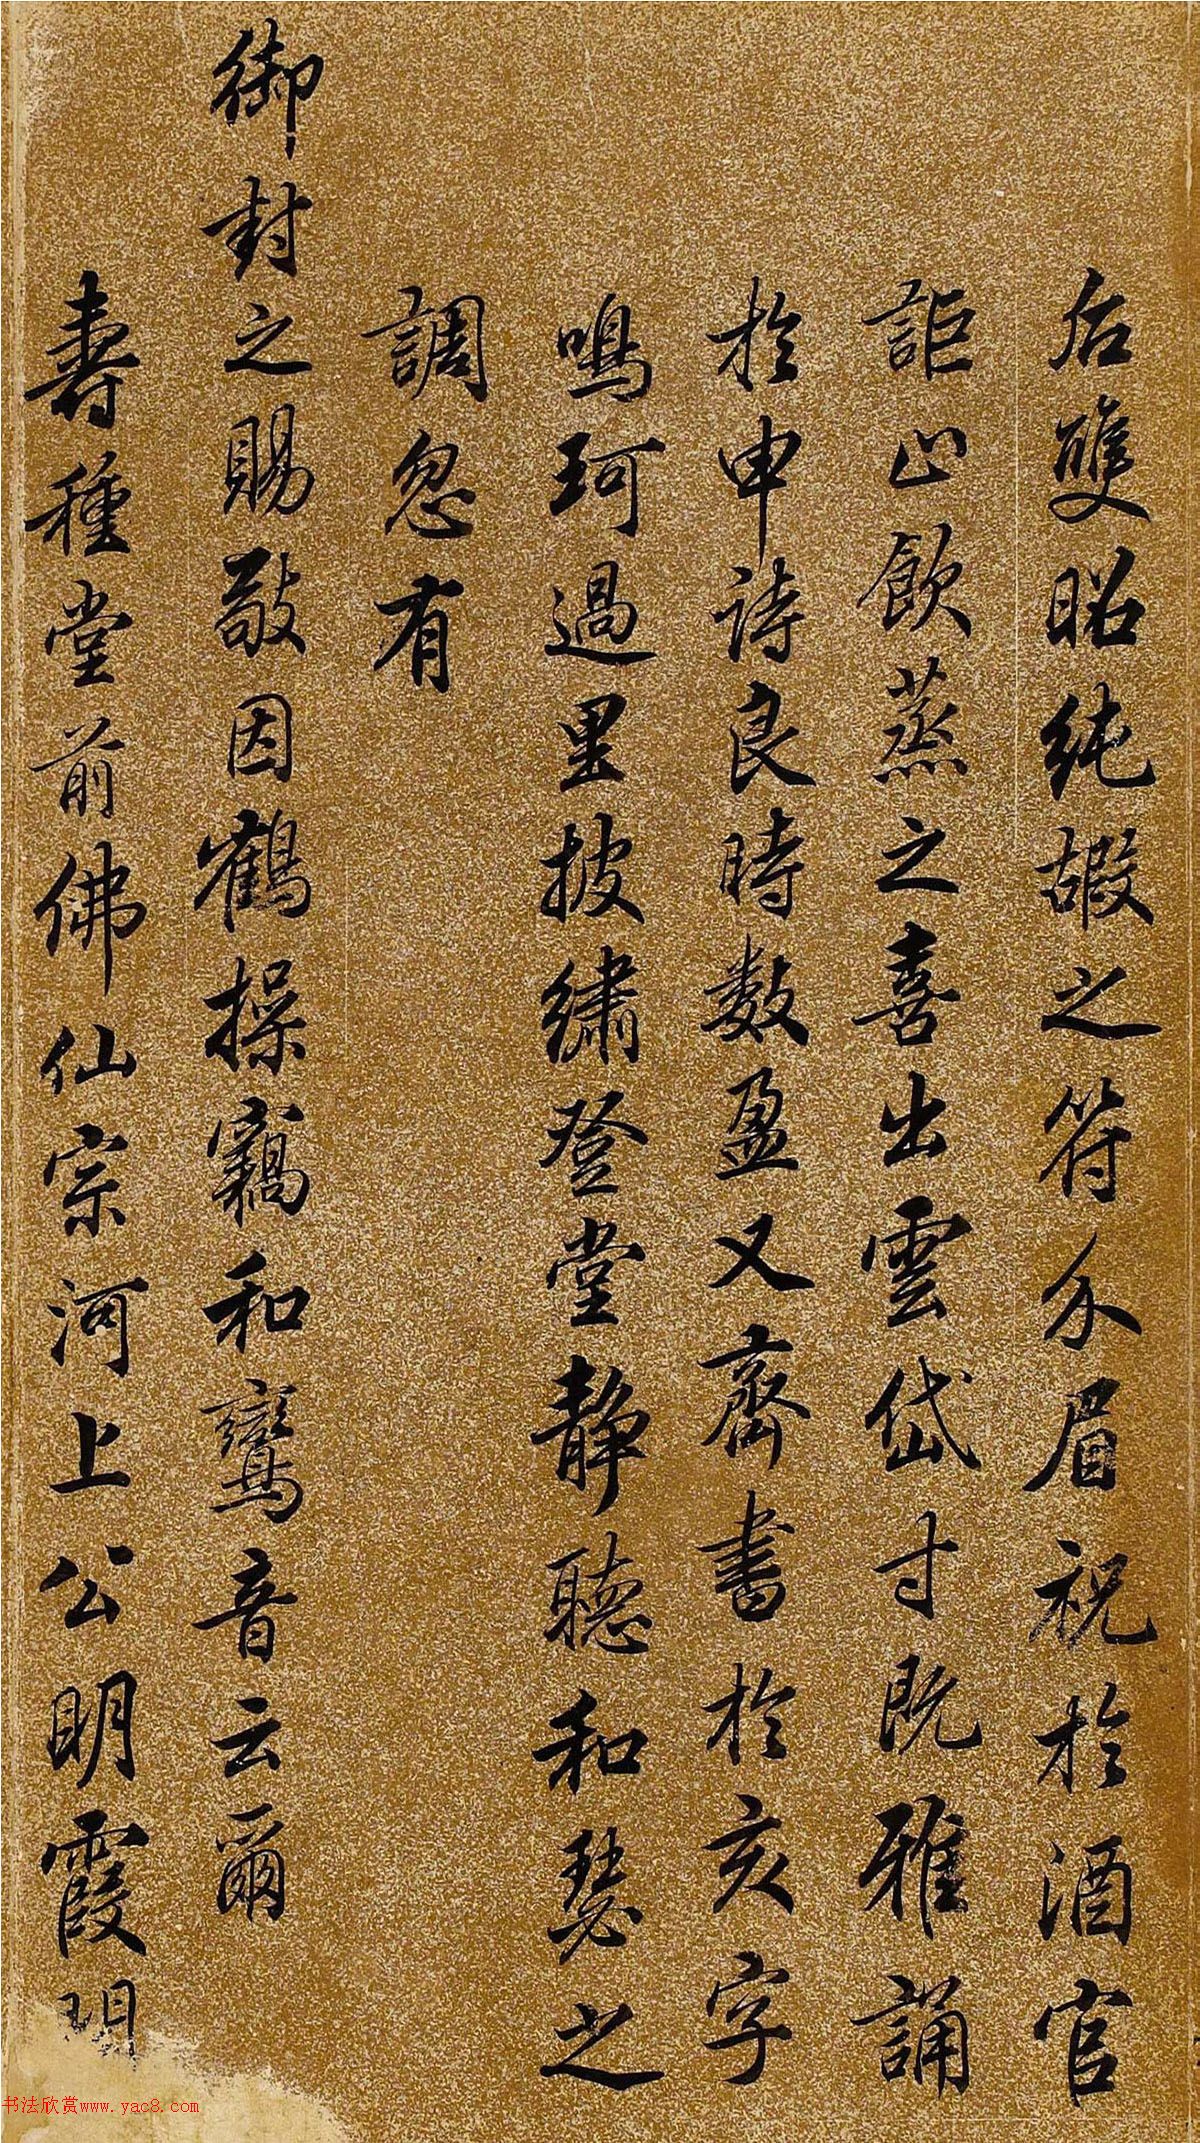 后雙昭純嘏之符介眉祝於酒官
詎止飲蒸之喜出雲岱寸既雅誦
於申詩良時數盈又齋書於亥字
鳴珂過里披繡登堂靜聽和瑟之
調忽有
御封之賜敢因鶴操竊和鸞音云爾
壽種堂前佛仙宗河上公明霞
书法欣赏www.yac8.com